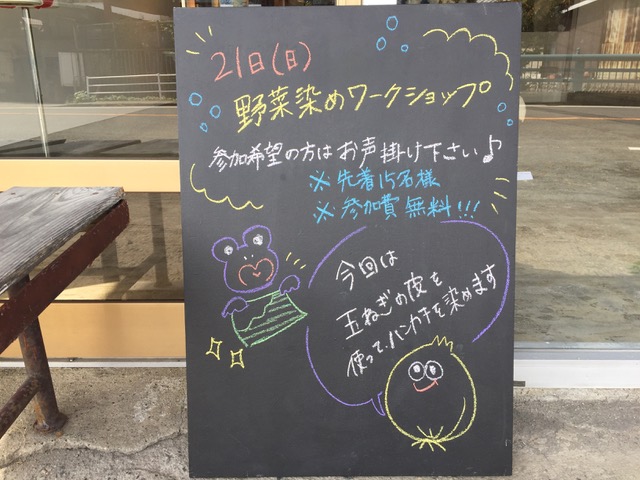 21日(日)
野菜染めワークショップ
参加希望の方はお声掛け下さい♪
※先着15名様
※参加費無料!!!
今回は
玉ねぎの皮を
使って、ハンカチを染めます